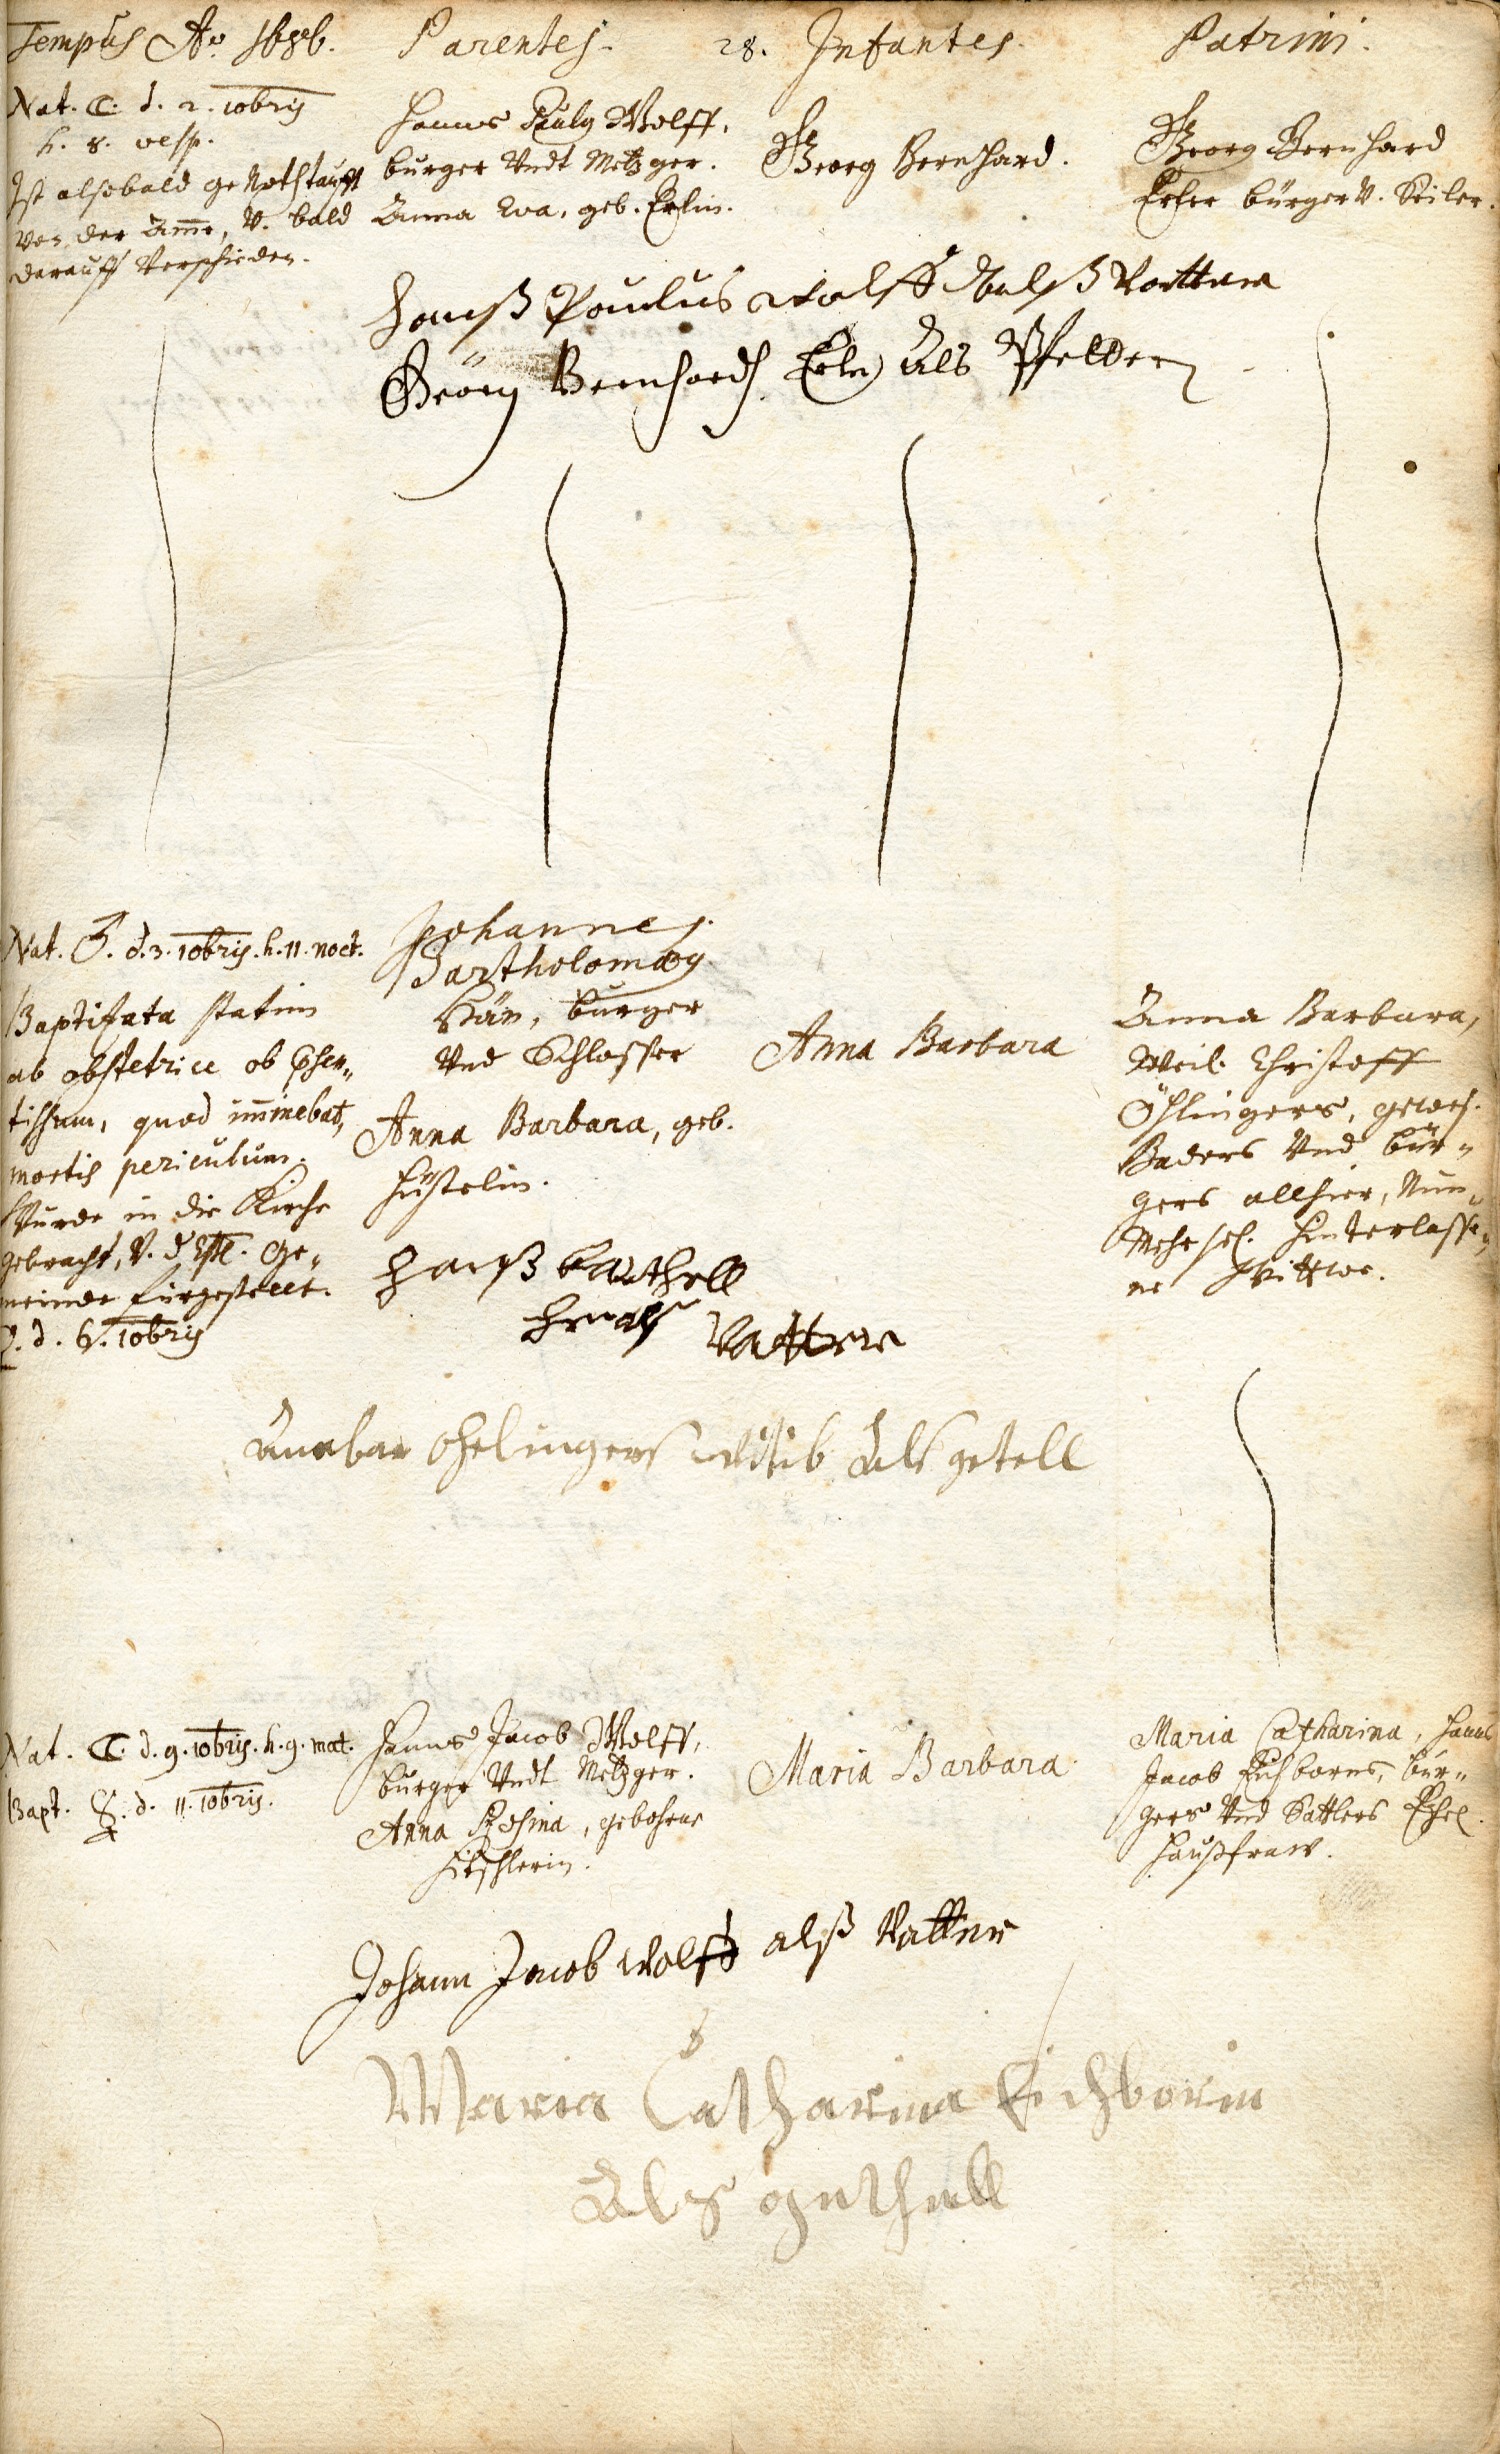 Tempus Ao 1686. Parentes. 28. Infantes. Patrini.
Nat. ☾. d. 2. 10bris
h. 8. vesp.
Ist alsobald genothtaufft
von der Amme, v. bald
darauff verschieden.
Hanns Paulg Wolff,
burger Undt Metzger.
Anna Eva, geb. Erlin.
Georg Bernhard.
Georg Bernhard
burger v. Seiler.
Hanß Paulus Wolff alß Vatter
Geörg Bernhardt als Pfetter
Nat. ♂. d. 3. 10bris. h. 11. noct.
Baptizata statim
ab obstetrice ob
quod im̄inebat,
mortis periculum.
Wurde in die Kirche
gebracht, v. d. Ge„
meinde fürgestellt.
d. 6. 10bris
Johannes
Bartholomæg
burger
Und Schlosser
Anna Barbara, geb.
Anna Barbara
Anna Barbara,
Weil. Christoff
Öhlingers, gewes.
Baders Und bür„
gers allhier, Nun„
Mehr sel. hinterlasse„
ne Wittwe.
Hanß barthell
als Vatter
Anabar Ohelingers witib Als getell
Nat. ☾. d. 9. 10bris. h. 9. mat.
Bapt. ☿. d. 11. 10bris.
Hanns Jacob Wolff,
burger Undt Metzger.
Anna Rosina, gebohrne
Maria Barbara
Maria Catharina, Hanns
Jacob Eichborns, bür„
gers Und Sattlers Ehel.
Haußfraw.
Johann Jacob Wolff alß Vatter
Maria Catharina Eichborin
Als gethell